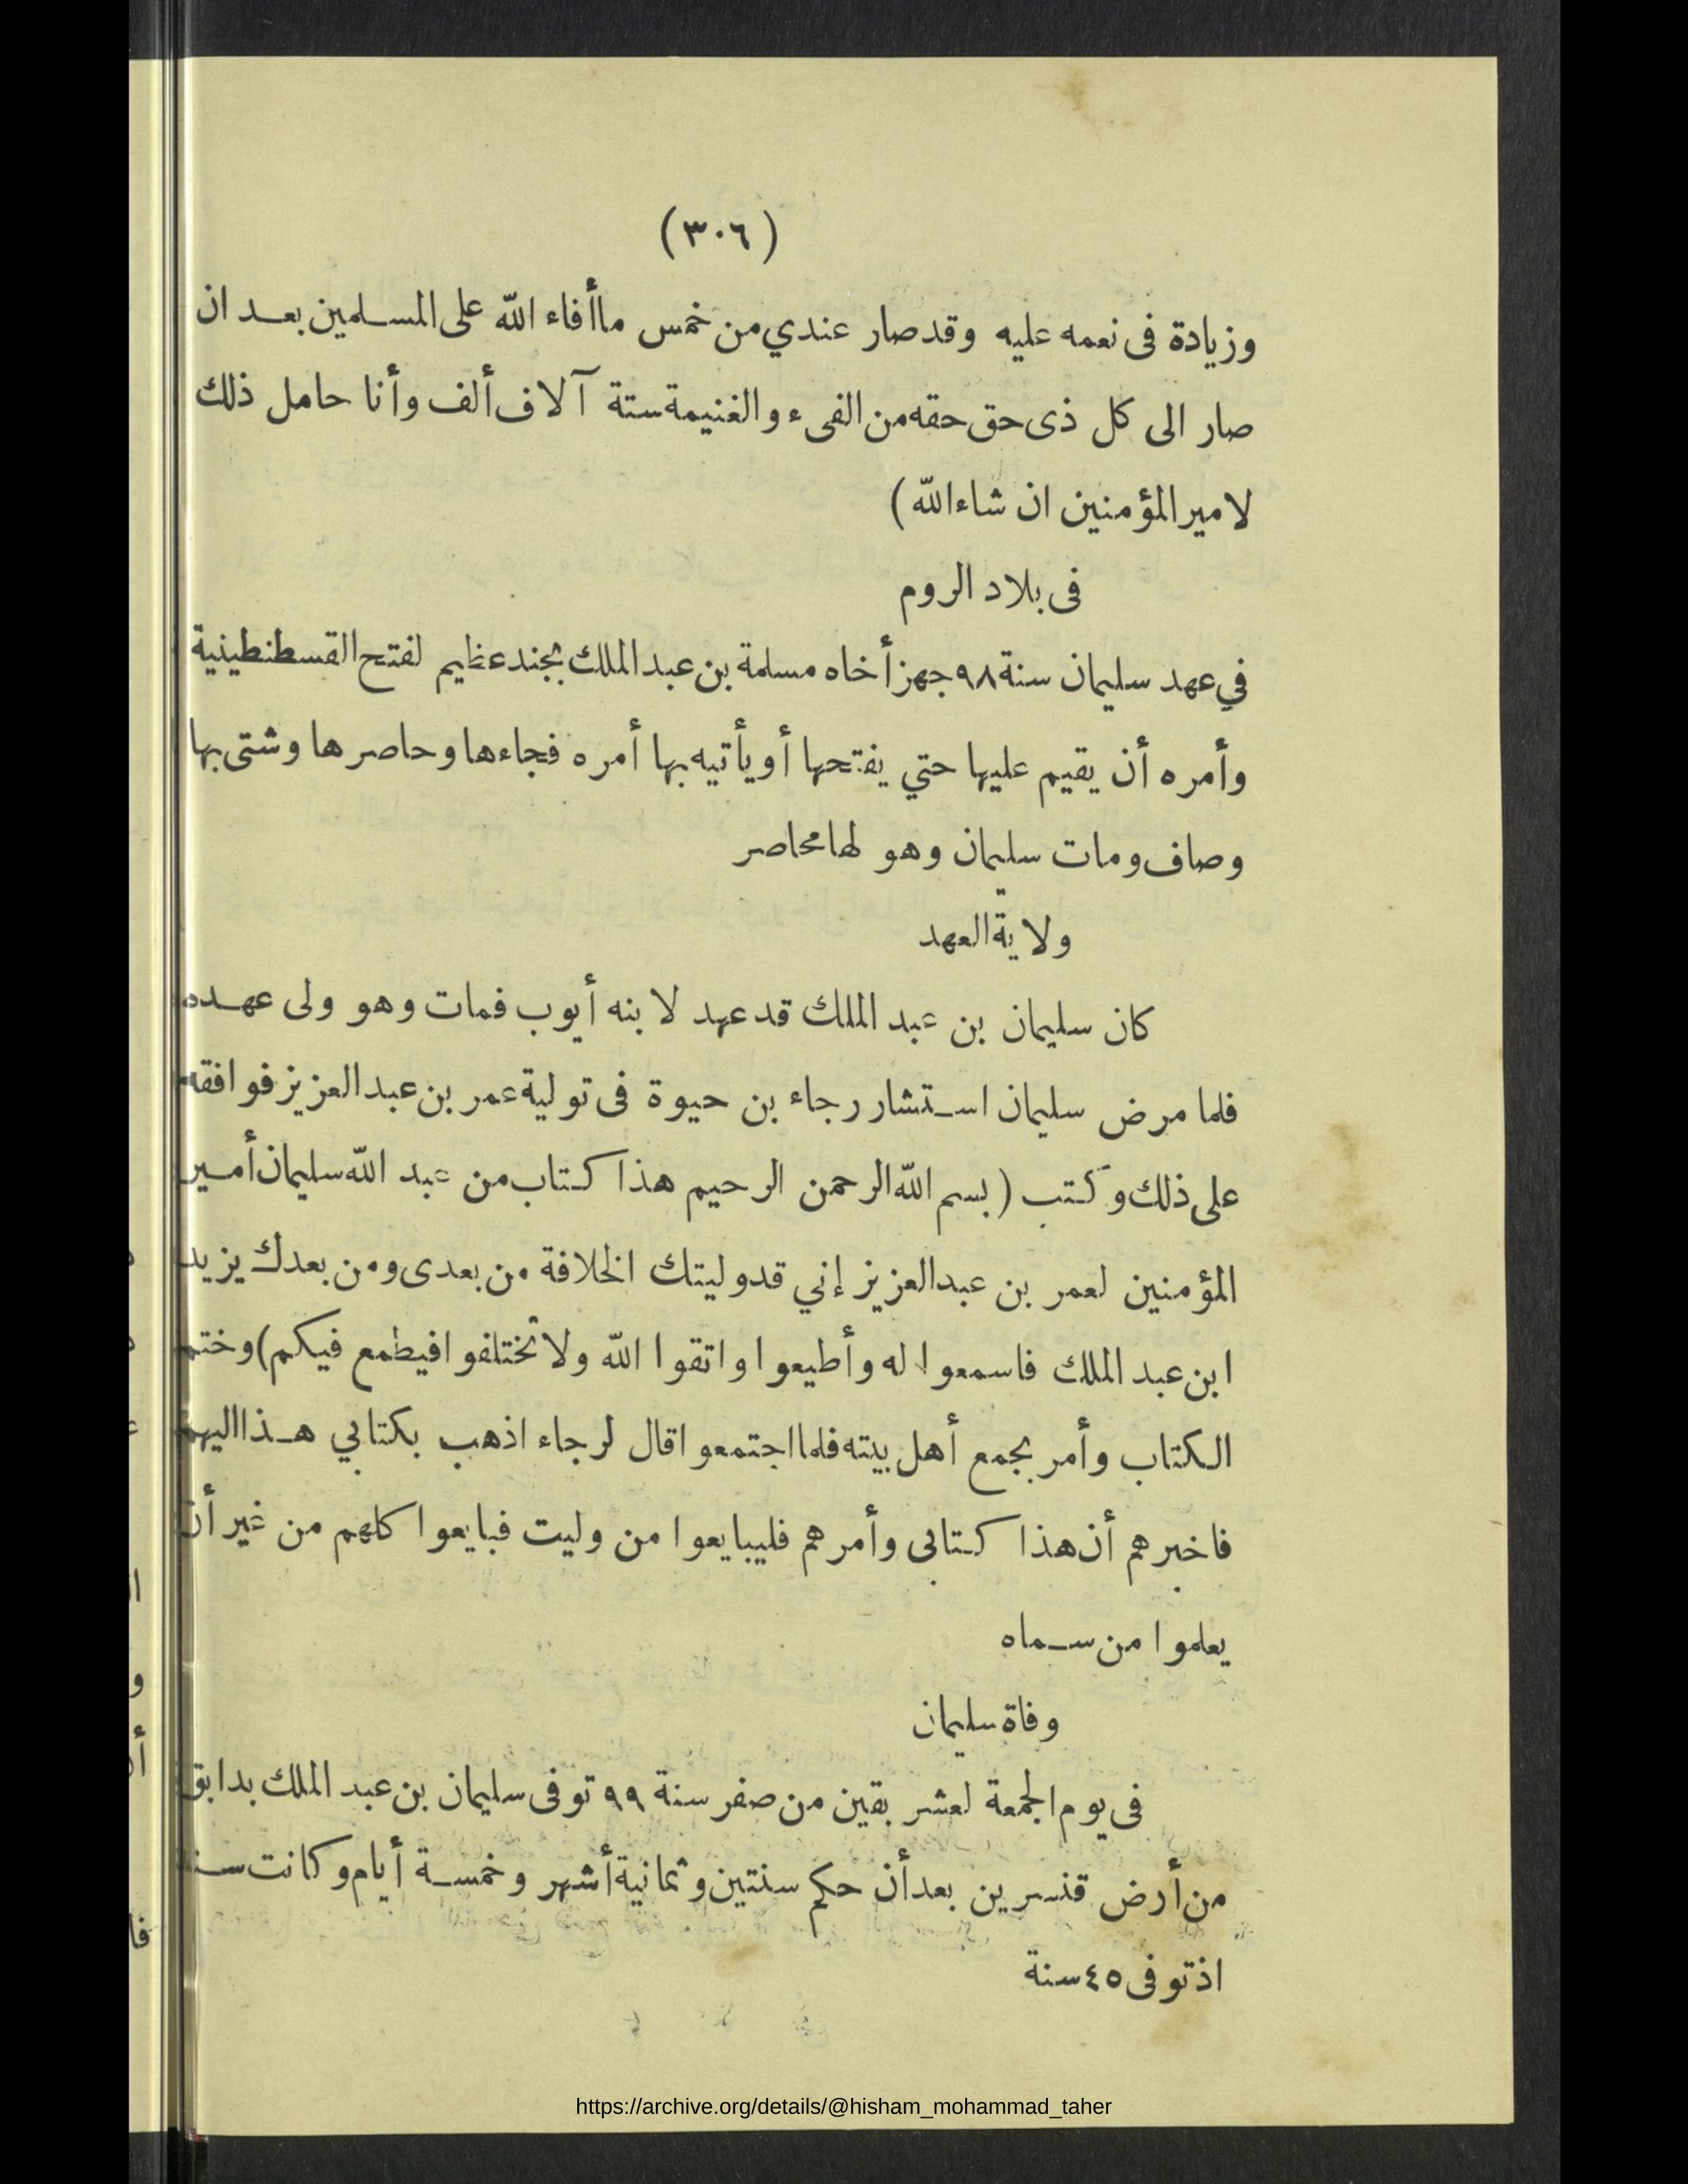 (٣٠٦)
وزيادة فى نعمه عليه وقد صار عندي من خمس ما أفاء الله على المسلمين بعد ان
صار الى كل ذى حق حقه من الفىء والغنيمة ستة آلاف ألف وأنا حامل ذلك
لامير المؤمنين ان شاء الله)
فى بلاد الروم
في عهد سليمان سنة ٩٨ جهز أخاه مسلمة بن عبد الملك بجند عظيم لفتح القسطنطينية
وأمره أن يقيم عليها حتي يفتحها أو يأتيه بها أمره فجاءها وحاصرها وشتى بها
وصاف ومات سليمان وهو لها محاصر
ولاية العهد
كان سليمان بن عبد الملك قد عهد لابنه أيوب فمات وهو ولى عهده
فلما مرض سليمان استشار رجاء بن حيوة فى تولية عمر بن عبد العزيز فوافقه
على ذلك وكتب (بسم الله الرحمن الرحيم هذا كتاب من عبد الله سليمان أمير
المؤمنين لعمر بن عبد العزيز إني قد وليتك الخلافة من بعدى ومن بعدك يزيد
ابن عبد الملك فاسمعوا له وأطيعوا واتقوا الله ولا تختلفوا فيطمع فيكم) وختم
الكتاب وأمر بجمع أهل بيته فلما اجتمعوا قال لرجاء اذهب بكتابي هذا اليهم
فاخبرهم أن هذا كتابى وأمرهم فليبايعوا من وليت فبايعوا كلهم من غير أن
يعلموا من سماه
وفاة سليمان
فى يوم الجمعة لعشر بقين من صفر سنة ٩٩ توفى سليمان بن عبد الملك بدابق
من أرض قنسرين بعد أن حكم سنتين وثمانية أشهر وخمسة أيام وكانت سنه
اذ توفى ٤٥ سنة
https://archive.org/details/@hisham_mohammad_taher